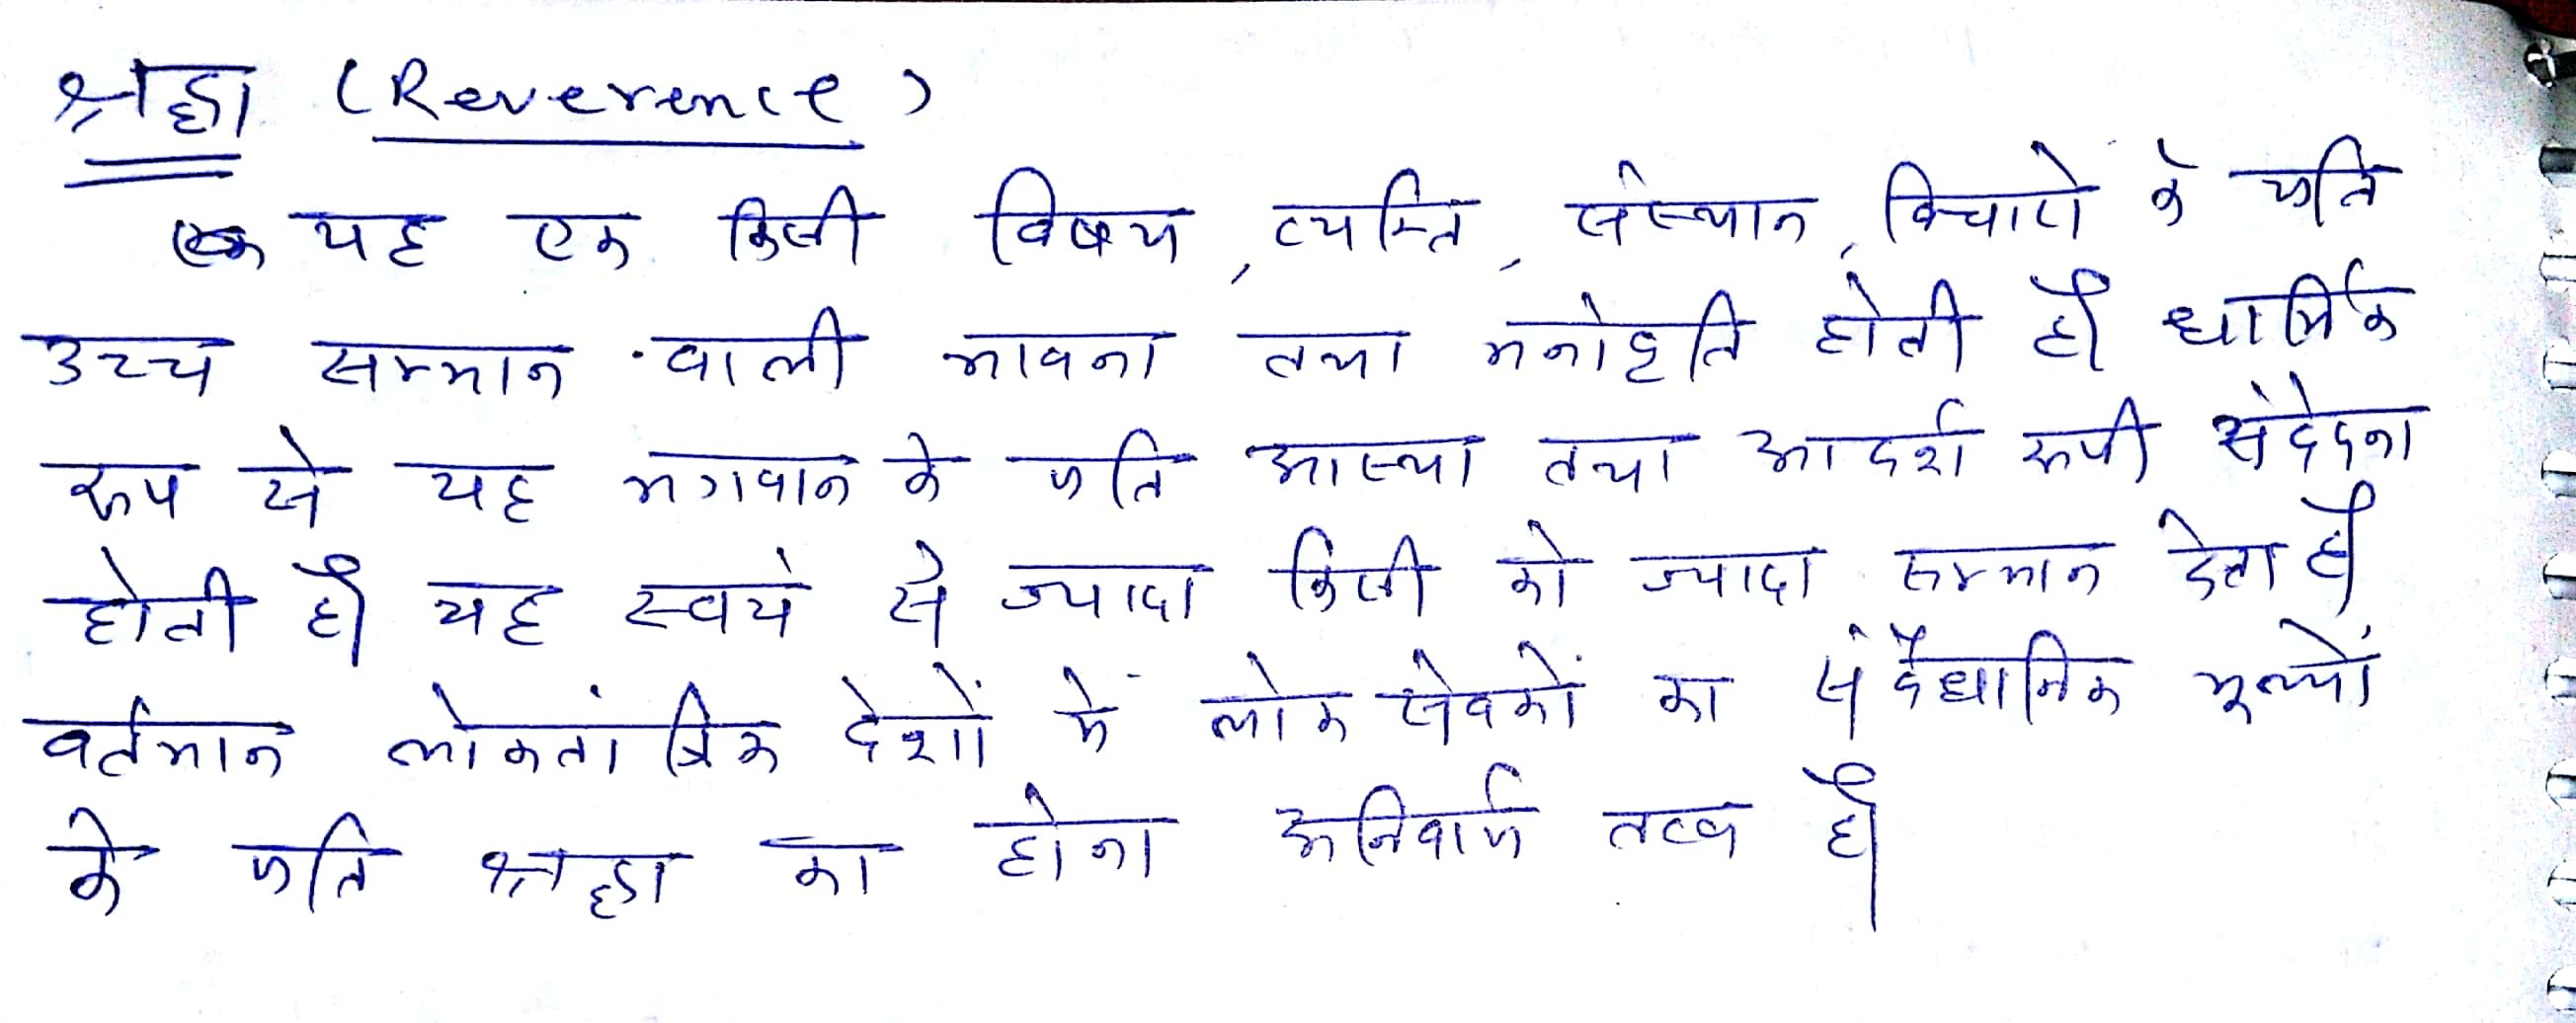 श्रद्धा (Reverence)
यह एक किसी विषय, व्यक्ति, संस्थान, विचारों के प्रति
उच्च सम्मान वाली भावना तथा मनोवृति होती है। धार्मिक
रूप से यह भगवान के प्रति आस्था तथा आदर्श रूपी संवेदना
होती है। यह स्वयं से ज्यादा किसी को ज्यादा सम्मान देता है।
वर्तमान लोकतांत्रिक देशों में लोक सेवकों का संवैधानिक मूल्यों
के प्रति श्रद्धा का होना अनिवार्य तत्व है।